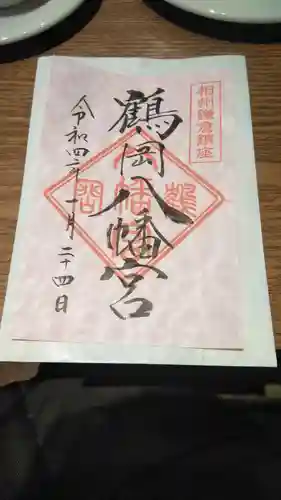 相州鎌倉鎮座
鶴岡八幡宮
令和四年一月二十四日